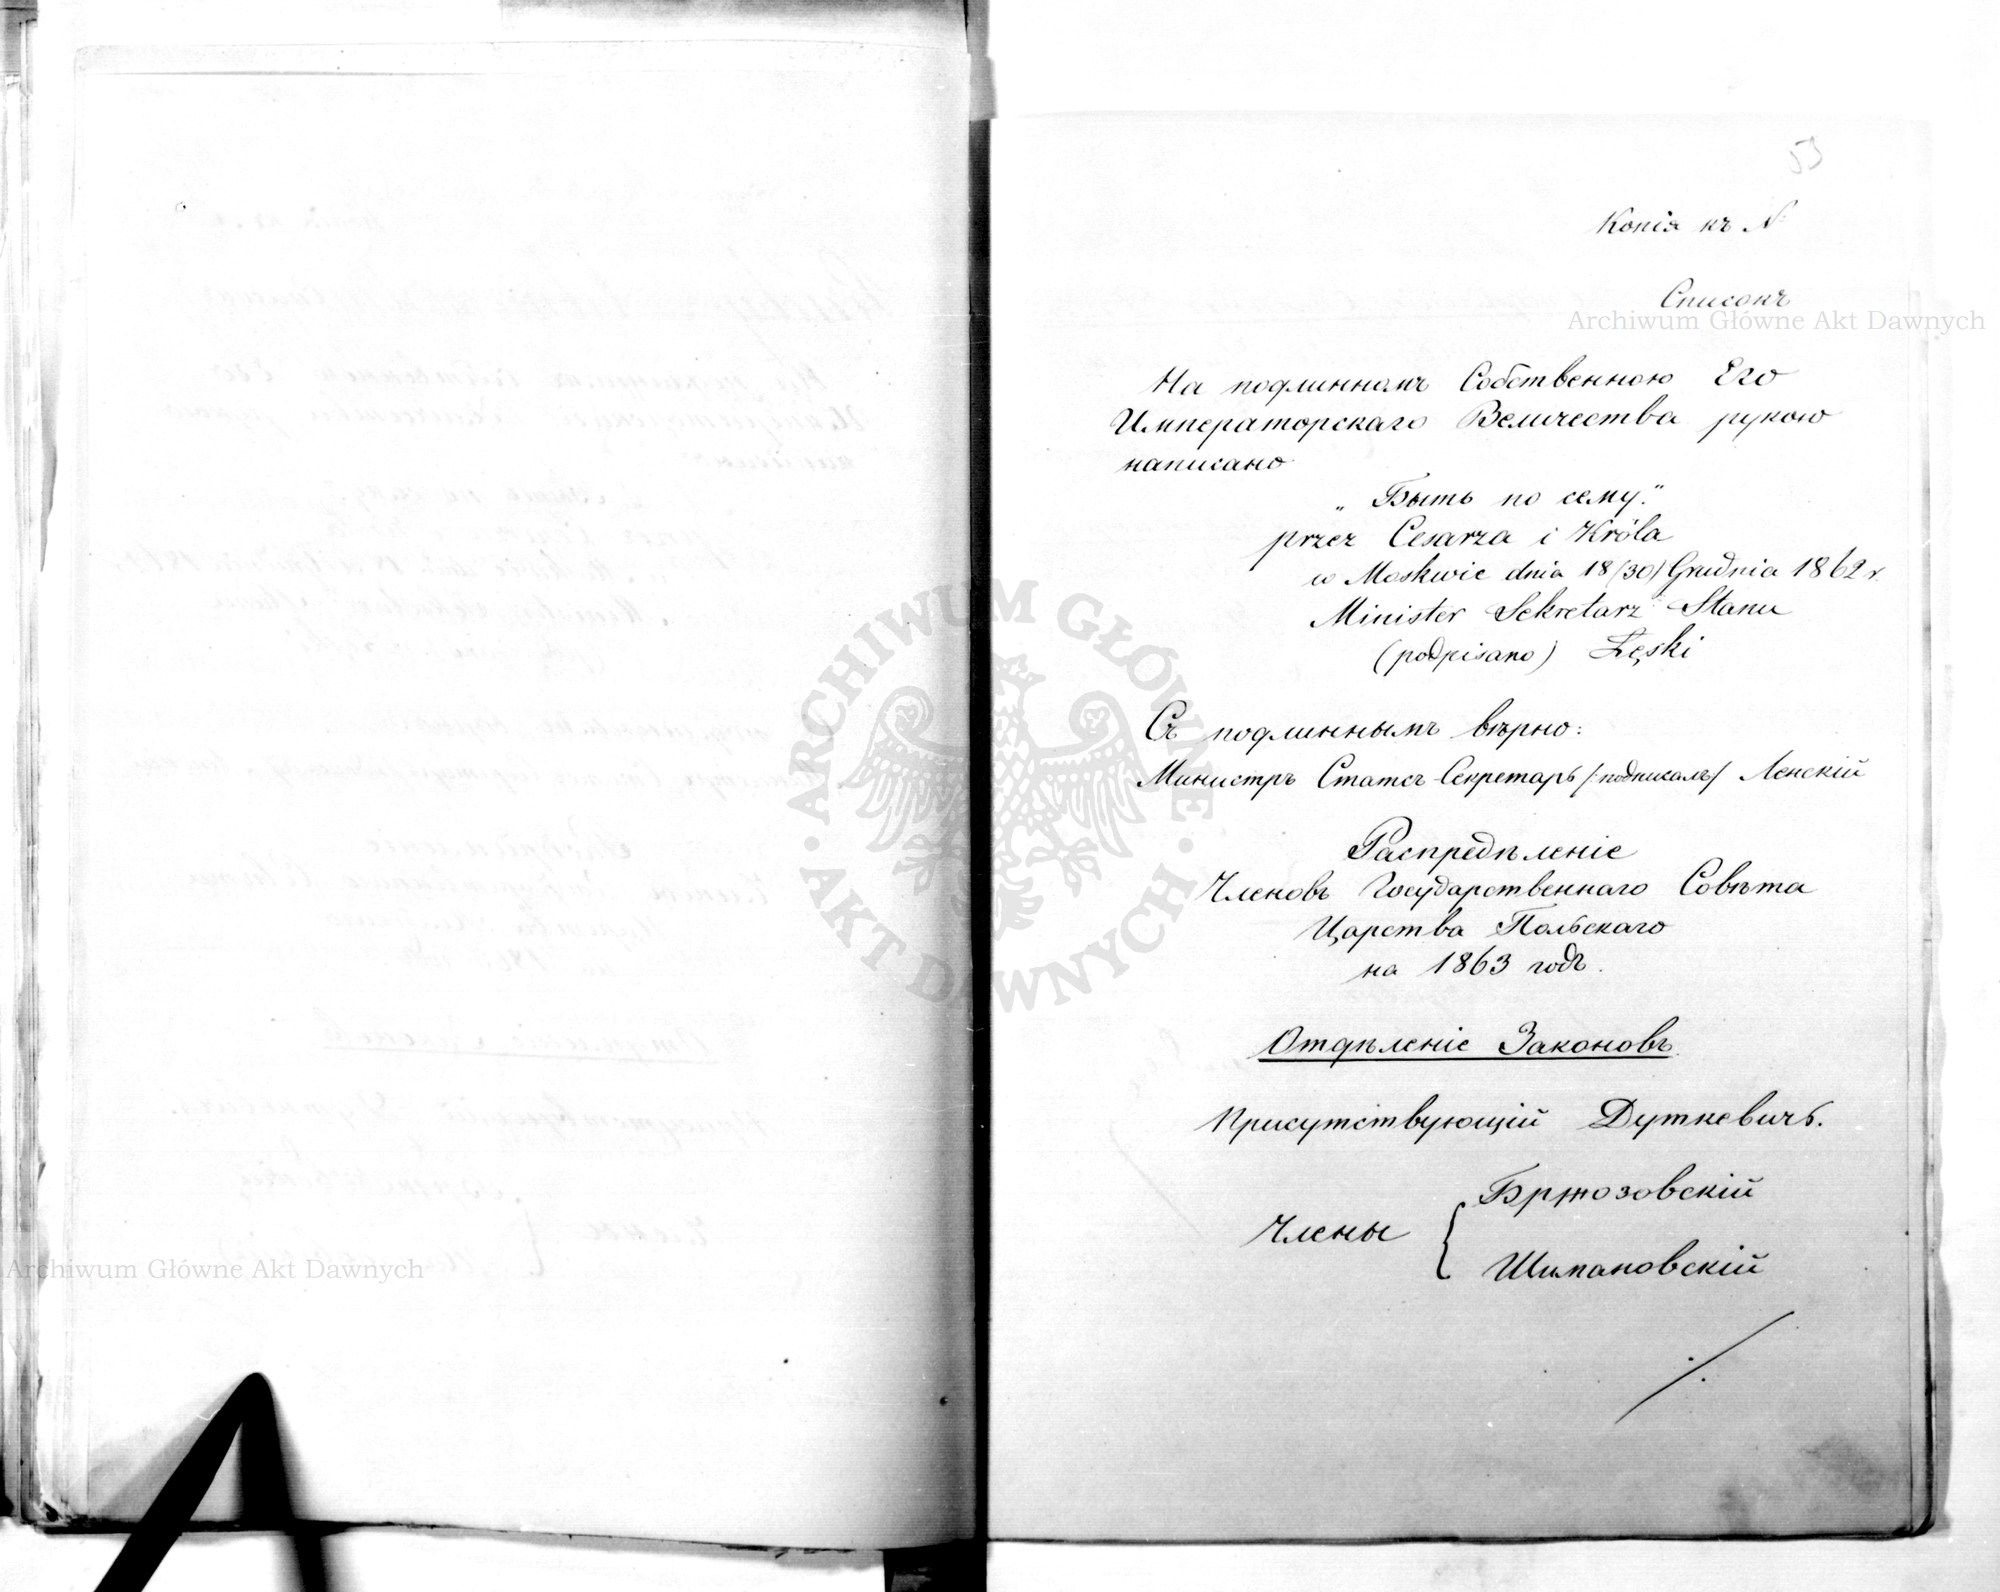 53
Копія къ №
Списокъ
Archiwum Główne Akt Dawnych
На подлинномъ Собственною Его
Императорскаго Величества рукою
написано
„Быть по сему."
przez Cesarza i Króla
w Moskwie dnia 18 (30) Grudnia 1862 r.
Minister Sekretarz Stanu
(podpisano) Łęski
Съ подлиннымъ вѣрно:
Министръ Статсъ-Секретарь /:подписалъ/ Ленскій
Распредѣленіе
Членовъ Государственнаго Совѣта
Царства Польскаго
на 1863 годъ.
Отдѣленіе Законовъ.
Присутствующій Дуткевичъ.
Члены { Бржозовскій
Шимановскій
ARCHIWUM GŁÓWNE · AKT DAWNYCH ·
Archiwum Główne Akt Dawnych